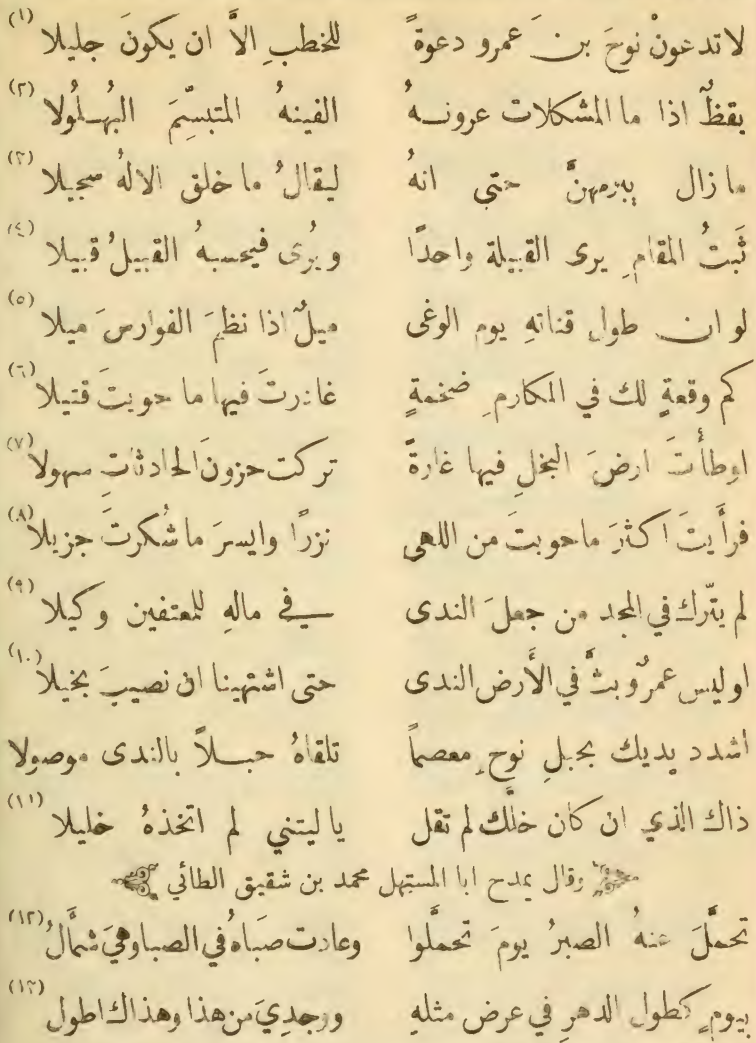 لا تدعونْ نوحَ بنَ عمرو دعوةً للخطبِ الاَّ ان يكونَ جليلا (١)
يقظٌ اذا ما المشكلات عرونهُ الفيتهُ المتبسِّمَ البُهلُولا (٢)
ما زال يبرمهنَّ حتى انهُ ليقالُ ما خلق الالهُ سحيلا (٣)
ثَبتُ المقامِ يرى القبيلة واحدًا ويُرى فيحسبهُ القبيلُ قبيلا (٤)
لو ان طول قناتهِ يوم الوغى ميلٌ اذا نظمَ الفوارسَ ميلا (٥)
كم وقعةٍ لك في المكارمِ ضخمةٍ غادرتَ فيها ما حويتَ قتيلا (٦)
اوطأتَ ارضَ البخلِ فيها غارةً تركت حزونَ الحادثاتِ سهولا (٧)
فرأَيتَ اكثرَ ما حويتَ من اللهى نزرًا وايسرَ ما شُكرتَ جزيلا (٨)
لم يترك في المجد من جعلَ الندى في مالهِ للمعتفين وكيلا (٩)
اوليس عمرٌو بثَّ في الأَرض الندى حتى اشتهينا ان نصيبَ بخيلا (١٠)
اشدد يديك بحبلِ نوحٍ معصماً تلقاهُ حبلاً بالندى موصولا
ذاك الذي ان كان خلَّك لم تقل يا ليتني لم اتخذهُ خليلا (١١)
وقال يمدح ابا المستهل محمد بن شقيق الطائي
تحمَّلَ عنهُ الصبرُ يومَ تحملوا وعادت صبَاهُ في الصبا وهيَ شمأَلُ (١٢)
بيومٍ كطول الدهرِ في عرض مثلهِ ووجديَ من هذا وهذاك اطول (١٣)